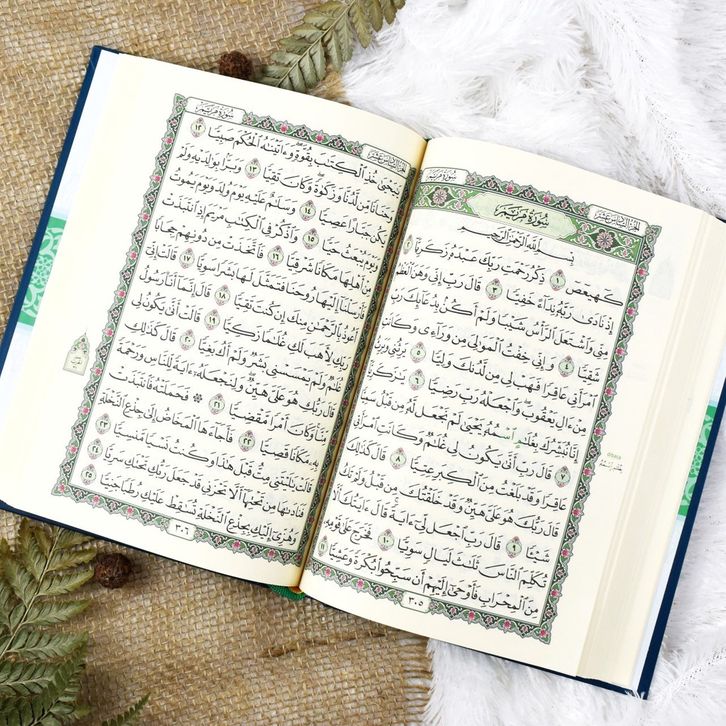 الجزء السادس عشر
سورة مريم
سُورَةُ مَرْيَمَ
بِسْمِ ٱللَّهِ ٱلرَّحْمَٰنِ ٱلرَّحِيمِ
كٓهيعٓصٓ ١ ذِكْرُ رَحْمَتِ رَبِّكَ عَبْدَهُۥ زَكَرِيَّآ ٢
إِذْ نَادَىٰ رَبَّهُۥ نِدَآءً خَفِيًّا ٣ قَالَ رَبِّ إِنِّي وَهَنَ ٱلْعَظْمُ
مِنِّي وَٱشْتَعَلَ ٱلرَّأْسُ شَيْبًا وَلَمْ أَكُنۢ بِدُعَآئِكَ رَبِّ
شَقِيًّا ٤ وَإِنِّي خِفْتُ ٱلْمَوَٰلِيَ مِن وَرَآءِي وَكَانَتِ
ٱمْرَأَتِي عَاقِرًا فَهَبْ لِي مِن لَّدُنكَ وَلِيًّا ٥ يَرِثُنِي وَيَرِثُ
مِنْ ءَالِ يَعْقُوبَ وَٱجْعَلْهُ رَبِّ رَضِيًّا ٦ يَٰزَكَرِيَّآ
إِنَّا نُبَشِّرُكَ بِغُلَٰمٍ ٱسْمُهُۥ يَحْيَىٰ لَمْ نَجْعَل لَّهُۥ مِن قَبْلُ سَمِيًّا
٧ قَالَ رَبِّ أَنَّىٰ يَكُونُ لِي غُلَٰمٌ وَكَانَتِ ٱمْرَأَتِي
عَاقِرًا وَقَدْ بَلَغْتُ مِنَ ٱلْكِبَرِ عِتِيًّا ٨ قَالَ كَذَٰلِكَ
قَالَ رَبُّكَ هُوَ عَلَيَّ هَيِّنٌ وَقَدْ خَلَقْتُكَ مِن قَبْلُ وَلَمْ تَكُ
شَيْـًٔا ٩ قَالَ رَبِّ ٱجْعَل لِّيٓ ءَايَةً قَالَ ءَايَتُكَ أَلَّا
تُكَلِّمَ ٱلنَّاسَ ثَلَٰثَ لَيَالٍ سَوِيًّا ١٠ فَخَرَجَ عَلَىٰ قَوْمِهِۦ
مِنَ ٱلْمِحْرَابِ فَأَوْحَىٰٓ إِلَيْهِمْ أَن سَبِّحُوا۟ بُكْرَةً وَعَشِيًّا ١١
٣٠٥
الجزء السادس عشر
سورة مريم
يَٰيَحْيَىٰ خُذِ ٱلْكِتَٰبَ بِقُوَّةٍ وَءَاتَيْنَٰهُ ٱلْحُكْمَ صَبِيًّا ١٢
وَحَنَانًا مِّن لَّدُنَّا وَزَكَوٰةً وَكَانَ تَقِيًّا ١٣ وَبَرًّۢا بِوَٰلِدَيْهِ وَلَمْ
يَكُن جَبَّارًا عَصِيًّا ١٤ وَسَلَٰمٌ عَلَيْهِ يَوْمَ وُلِدَ وَيَوْمَ يَمُوتُ
وَيَوْمَ يُبْعَثُ حَيًّا ١٥ وَٱذْكُرْ فِي ٱلْكِتَٰبِ مَرْيَمَ إِذِ ٱنتَبَذَتْ
مِنْ أَهْلِهَا مَكَانًا شَرْقِيًّا ١٦ فَٱتَّخَذَتْ مِن دُونِهِمْ حِجَابًا
فَأَرْسَلْنَآ إِلَيْهَا رُوحَنَا فَتَمَثَّلَ لَهَا بَشَرًا سَوِيًّا ١٧ قَالَتْ إِنِّيٓ
أَعُوذُ بِٱلرَّحْمَٰنِ مِنكَ إِن كُنتَ تَقِيًّا ١٨ قَالَ إِنَّمَآ أَنَا۠ رَسُولُ
رَبِّكِ لِأَهَبَ لَكِ غُلَٰمًا زَكِيًّا ١٩ قَالَتْ أَنَّىٰ يَكُونُ لِي
غُلَٰمٌ وَلَمْ يَمْسَسْنِي بَشَرٌ وَلَمْ أَكُ بَغِيًّا ٢٠ قَالَ كَذَٰلِكِ
قَالَ رَبُّكِ هُوَ عَلَيَّ هَيِّنٌ وَلِنَجْعَلَهُۥٓ ءَايَةً لِّلنَّاسِ وَرَحْمَةً
مِّنَّا وَكَانَ أَمْرًا مَّقْضِيًّا ٢١ ۞ فَحَمَلَتْهُ فَٱنتَبَذَتْ
بِهِۦ مَكَانًا قَصِيًّا ٢٢ فَأَجَآءَهَا ٱلْمَخَاضُ إِلَىٰ جِذْعِ ٱلنَّخْلَةِ
قَالَتْ يَٰلَيْتَنِي مِتُّ قَبْلَ هَٰذَا وَكُنتُ نَسْيًا مَّنسِيًّا ٢٣
فَنَادَىٰهَا مِن تَحْتِهَآ أَلَّا تَحْزَنِي قَدْ جَعَلَ رَبُّكِ تَحْتَكِ سَرِيًّا ٢٤
وَهُزِّيٓ إِلَيْكِ بِجِذْعِ ٱلنَّخْلَةِ تُسَٰقِطْ عَلَيْكِ رُطَبًا جَنِيًّا ٢٥
٣٠٦